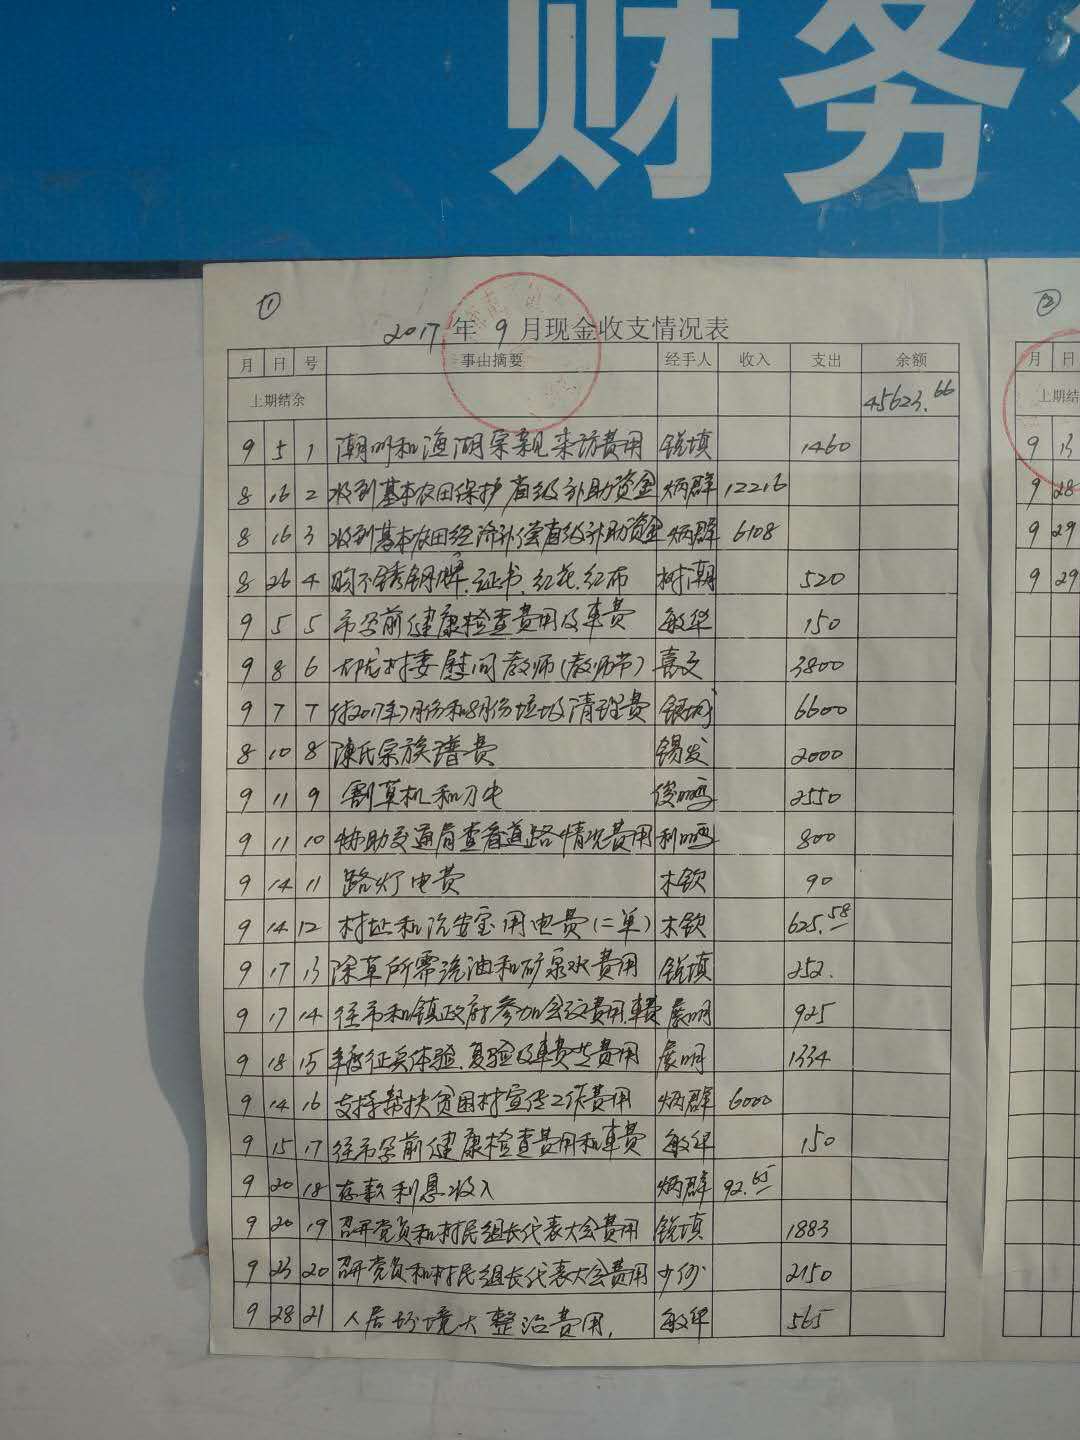 财务
①
2017年9月现金收支情况表
月 日 号 事由摘要 经手人 收入 支出 余额
上期结余 45623.66
9 5 1 潮州和渔湖宗亲来访费用 锐填 1460
8 16 2 收到基本农田保护省级补助资金 炳群 12216
8 16 3 收到基本农田经济补偿省级补助资金 炳群 6108
8 26 4 购不锈钢牌.证书.红花.红布 树潮 520
9 5 5 市孕前健康检查费用及车费 敏华 150
9 8 6 村委慰问教师(教师节) 嘉文 3800
9 7 7 付2017年7月份和8月份垃圾清理费 6600
8 10 8 陳氏宗族谱费 锡发 2000
9 11 9 割草机和刀 2550
9 11 10 协助交通局查看道路情况费用 800
9 14 11 路灯电费 木钦 90
9 14 12 村址和治安室用电费(二单) 木钦 625.58
9 17 13 除草所需汽油和矿泉水费用 锐填 252.
9 17 14 往市和镇政府参加会议费用.车费 展明 925
9 18 15 年度征兵体验.复验及车费等费用 展明 1334
9 14 16 支持帮扶贫困村宣传工作费用 炳群 6000
9 15 17 往市孕前健康检查费用和车费 敏华 150
9 20 18 存款利息收入 炳群 92.65
9 20 19 召开党员和村民组长代表大会费用 锐填 1883
9 23 20 召开党员和村民组长代表大会费用 2150
9 28 21 人居环境大整治费用. 敏华 565
②
月 日
上期结
9 13
9 28
9 29
9 29